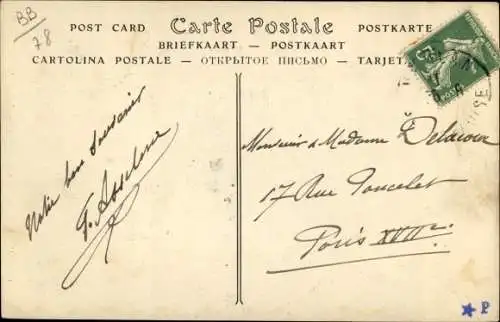 BB
78
POST CARD Carte Postale POSTKARTE
BRIEFKAART — POSTKAART
CARTOLINA POSTALE — ОТКРЫТОЕ ПИСЬМО — TARJETA
5
Notre bon souvenir
Monsieur & Madame Delacour
17 Rue Poncelet
Paris XVIIe
P